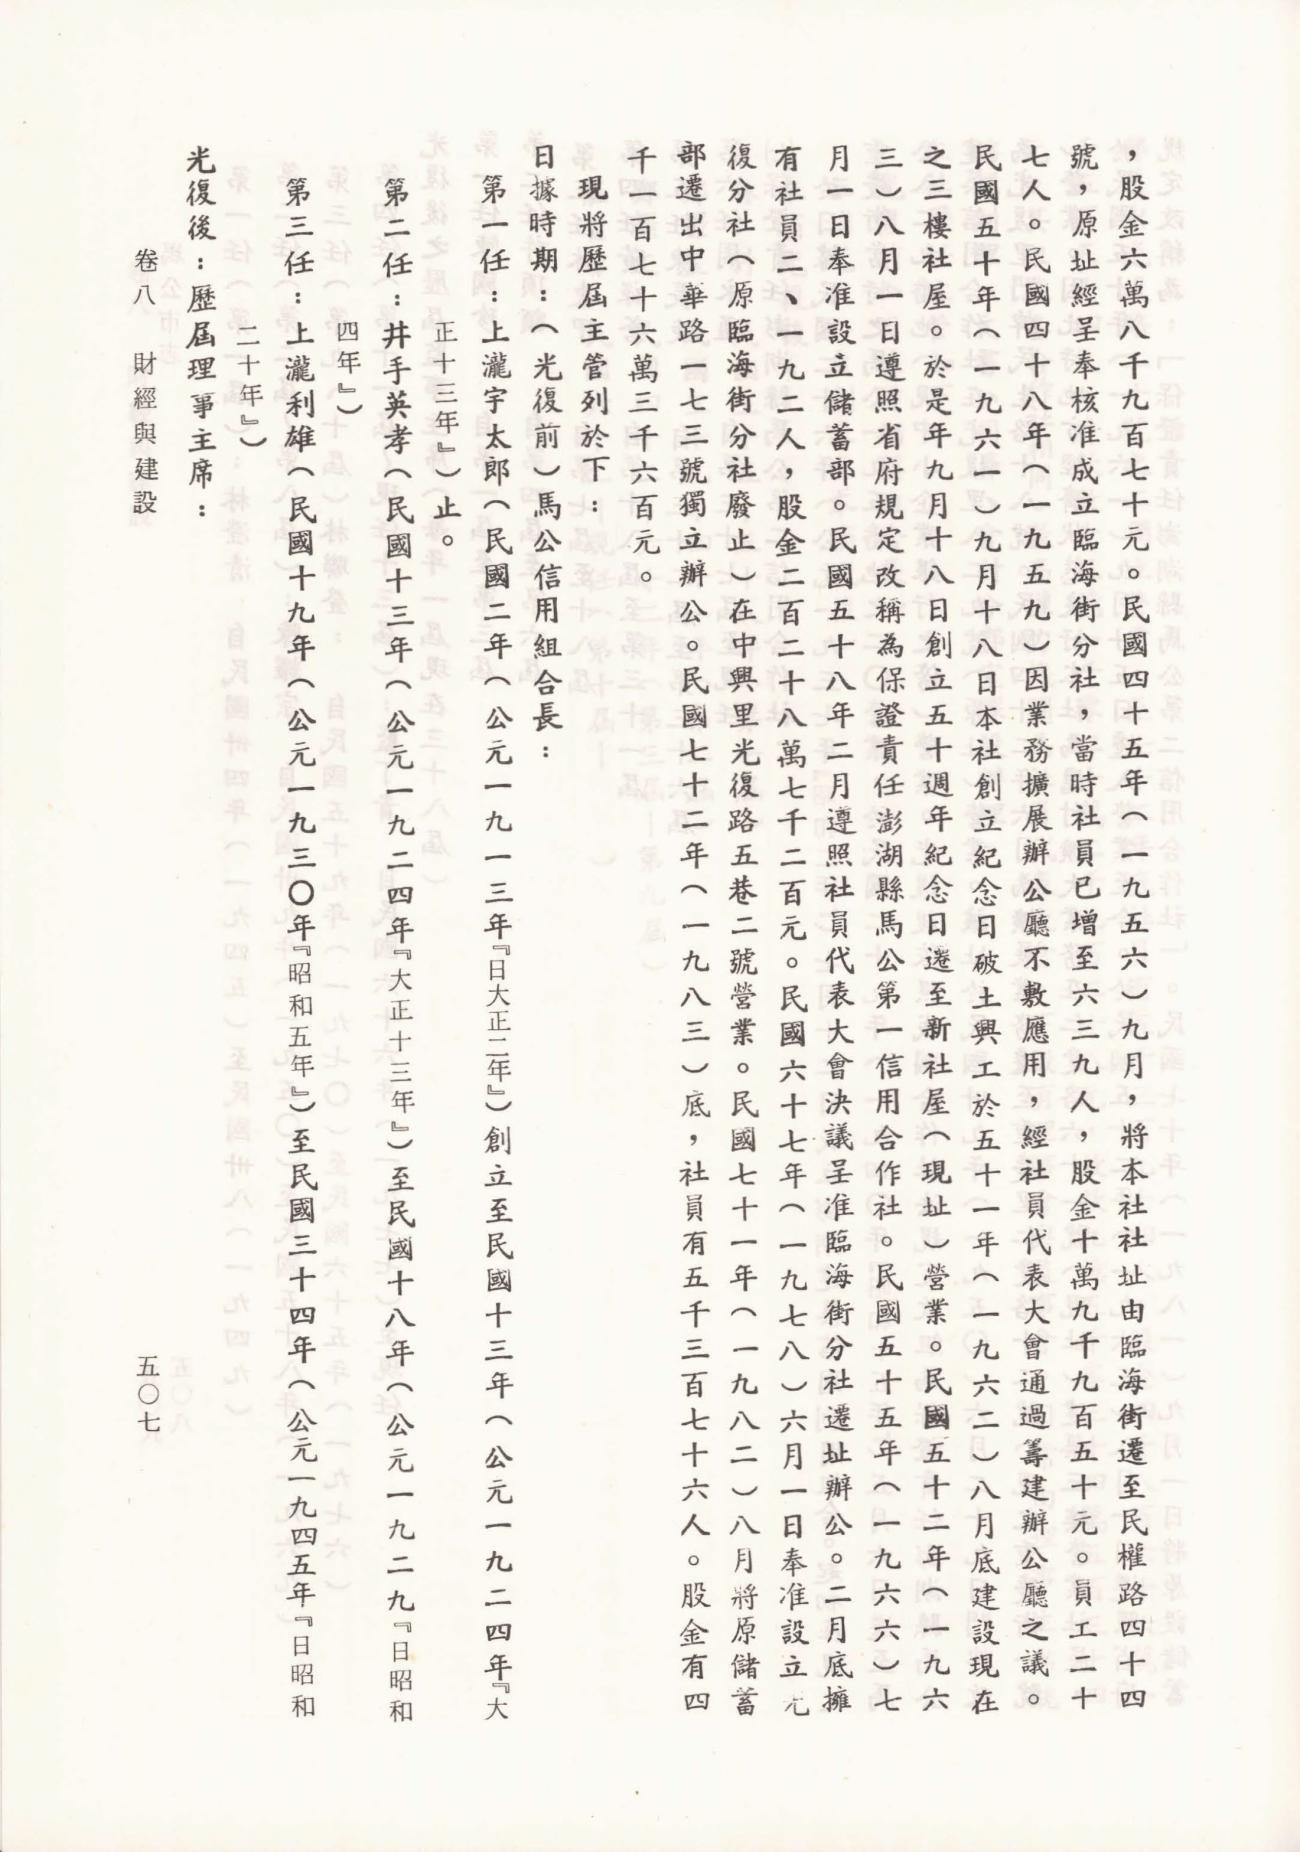 ，股金六萬八千九百七十元。民國四十五年（一九五六）九月，將本社社址由臨海街遷至民權路四十四
號，原址經呈奉核准成立臨海街分社，當時社員已增至六三九人，股金十萬九千九百五十元。員工二十
七人。民國四十八年（一九五九）因業務擴展辦公廳不敷應用，經社員代表大會通過籌建辦公廳之議。
民國五十年（一九六一）九月十八日本社創立紀念日破土興工於五十一年（一九六二）八月底建設現在
之三樓社屋。於是年九月十八日創立五十週年紀念日遷至新社屋（現址）營業。民國五十二年（一九六
三）八月一日遵照省府規定改稱為保證責任澎湖縣馬公第一信用合作社。民國五十五年（一九六六）七
月一日奉准設立儲蓄部。民國五十八年二月遵照社員代表大會決議呈准臨海街分社遷址辦公。二月底擁
有社員二、一九二人，股金二百二十八萬七千二百元。民國六十七年（一九七八）六月一日奉准設立光
復分社（原臨海街分社廢止）在中興里光復路五巷二號營業。民國七十一年（一九八二）八月將原儲蓄
部遷出中華路一七三號獨立辦公。民國七十二年（一九八三）底，社員有五千三百七十六人。股金有四
千一百七十六萬三千六百元。
現將歷屆主管列於下：
日據時期：（光復前）馬公信用組合長：
第一任：上瀧宇太郎（民國二年（公元一九一三年『日大正二年』）創立至民國十三年（公元一九二四年『大
正十三年』）止。
第二任：井手英孝（民國十三年（公元一九二四年『大正十三年』）至民國十八年（公元一九二九『日昭和
四年』）
第三任：上瀧利雄（民國十九年（公元一九三〇年『昭和五年』）至民國三十四年（公元一九四五年『日昭和
二十年』）
光復後：歷屆理事主席：
卷八　財經與建設
五〇七